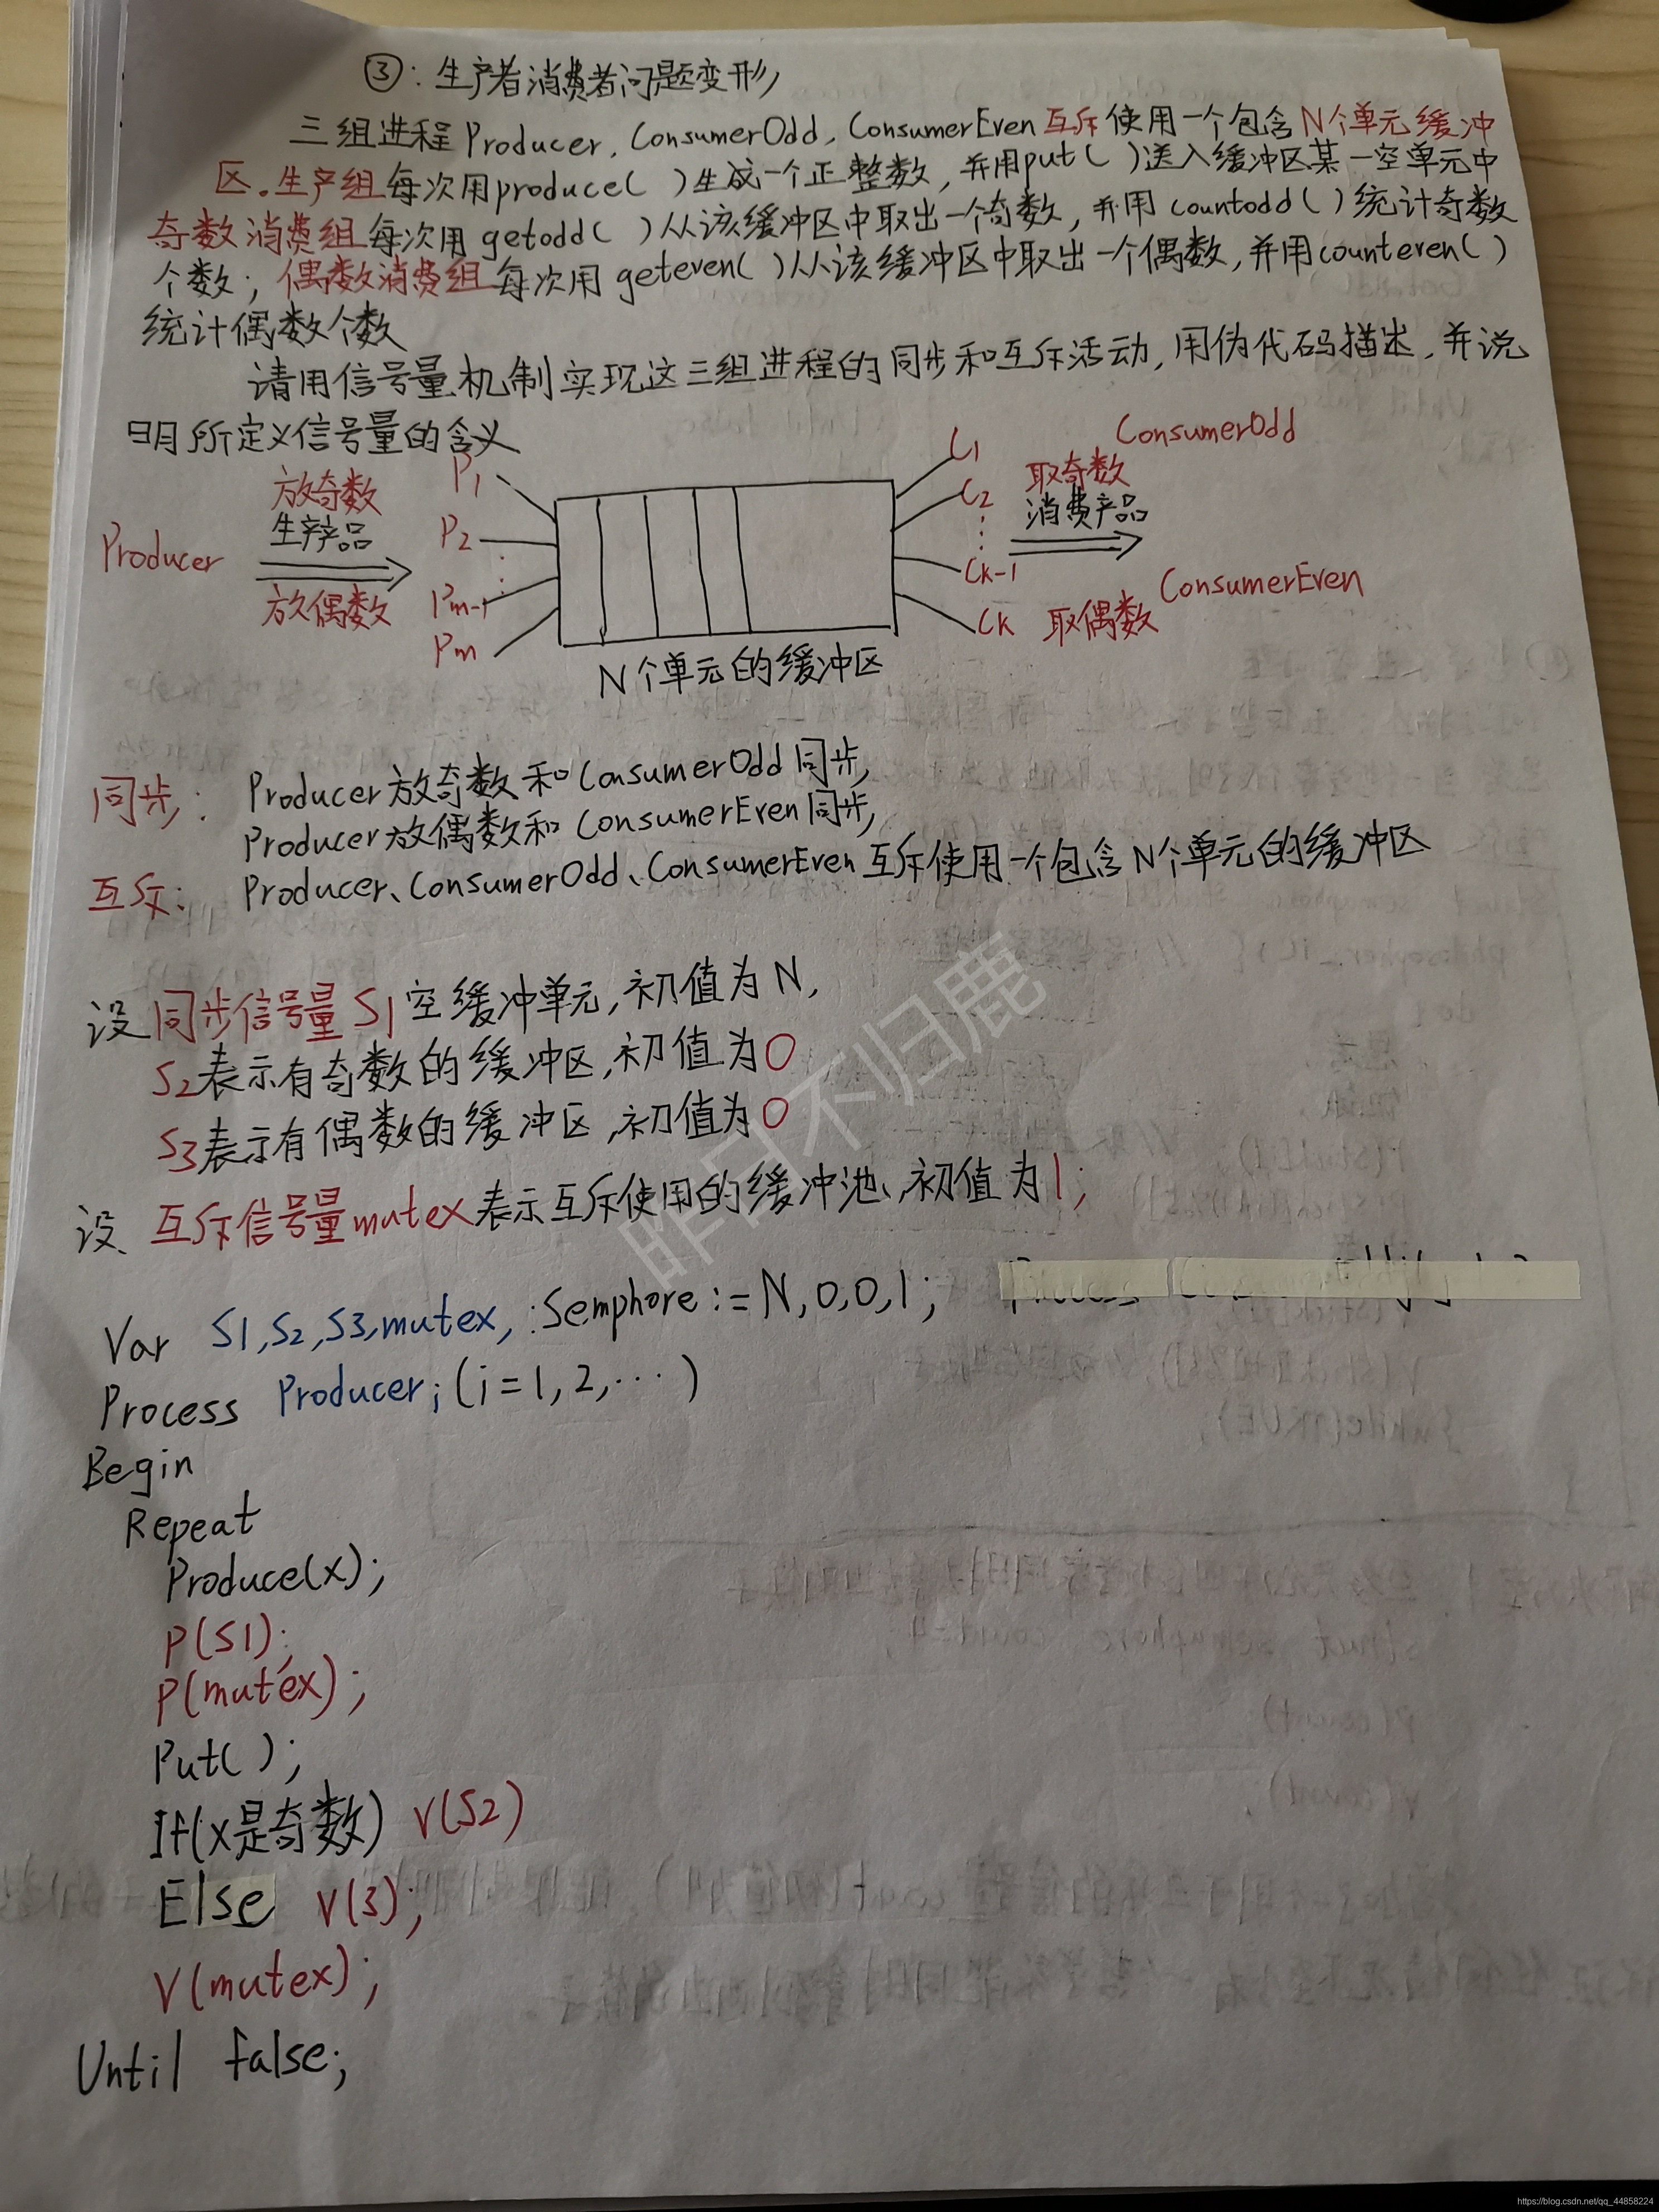 ③：生产者消费者问题变形
三组进程Producer，ConsumerOdd，ConsumerEven互斥使用一个包含N个单元缓冲
区。生产组每次用produce( )生成一个正整数，并用put( )送入缓冲区某一空单元中
奇数消费组每次用getodd( )从该缓冲区中取出一个奇数，并用countodd( )统计奇数
个数；偶数消费组每次用geteven( )从该缓冲区中取出一个偶数，并用counteren( )
统计偶数个数
请用信号量机制实现这三组进程的同步和互斥活动，用伪代码描述，并说
明所定义信号量的含义
Producer
放奇数
生产产品
放偶数
P1
P2
Pm-1
Pm
N个单元的缓冲区
C1
C2
Ck-1
Ck
取奇数
消费产品
取偶数
ConsumerOdd
ConsumerEven
同步： Producer放奇数和ConsumerOdd同步，
Producer放偶数和ConsumerEven同步，
互斥： Producer、ConsumerOdd、ConsumerEven互斥使用一个包含N个单元的缓冲区
设同步信号量S1空缓冲单元，初值为N，
S2表示有奇数的缓冲区，初值为0
S3表示有偶数的缓冲区，初值为0
设、互斥信号量mutex表示互斥使用的缓冲池，初值为1；
昨日不归鹿
Var S1,S2,S3,mutex, :Semphore:=N,0,0,1;
Process Produceri(i=1,2,…)
Begin
Repeat
Produce(x);
P(S1);
P(mutex);
Put( );
If(x是奇数) V(S2)
Else V(3);
V(mutex);
Until false;
https://blog.csdn.net/qq_44858224